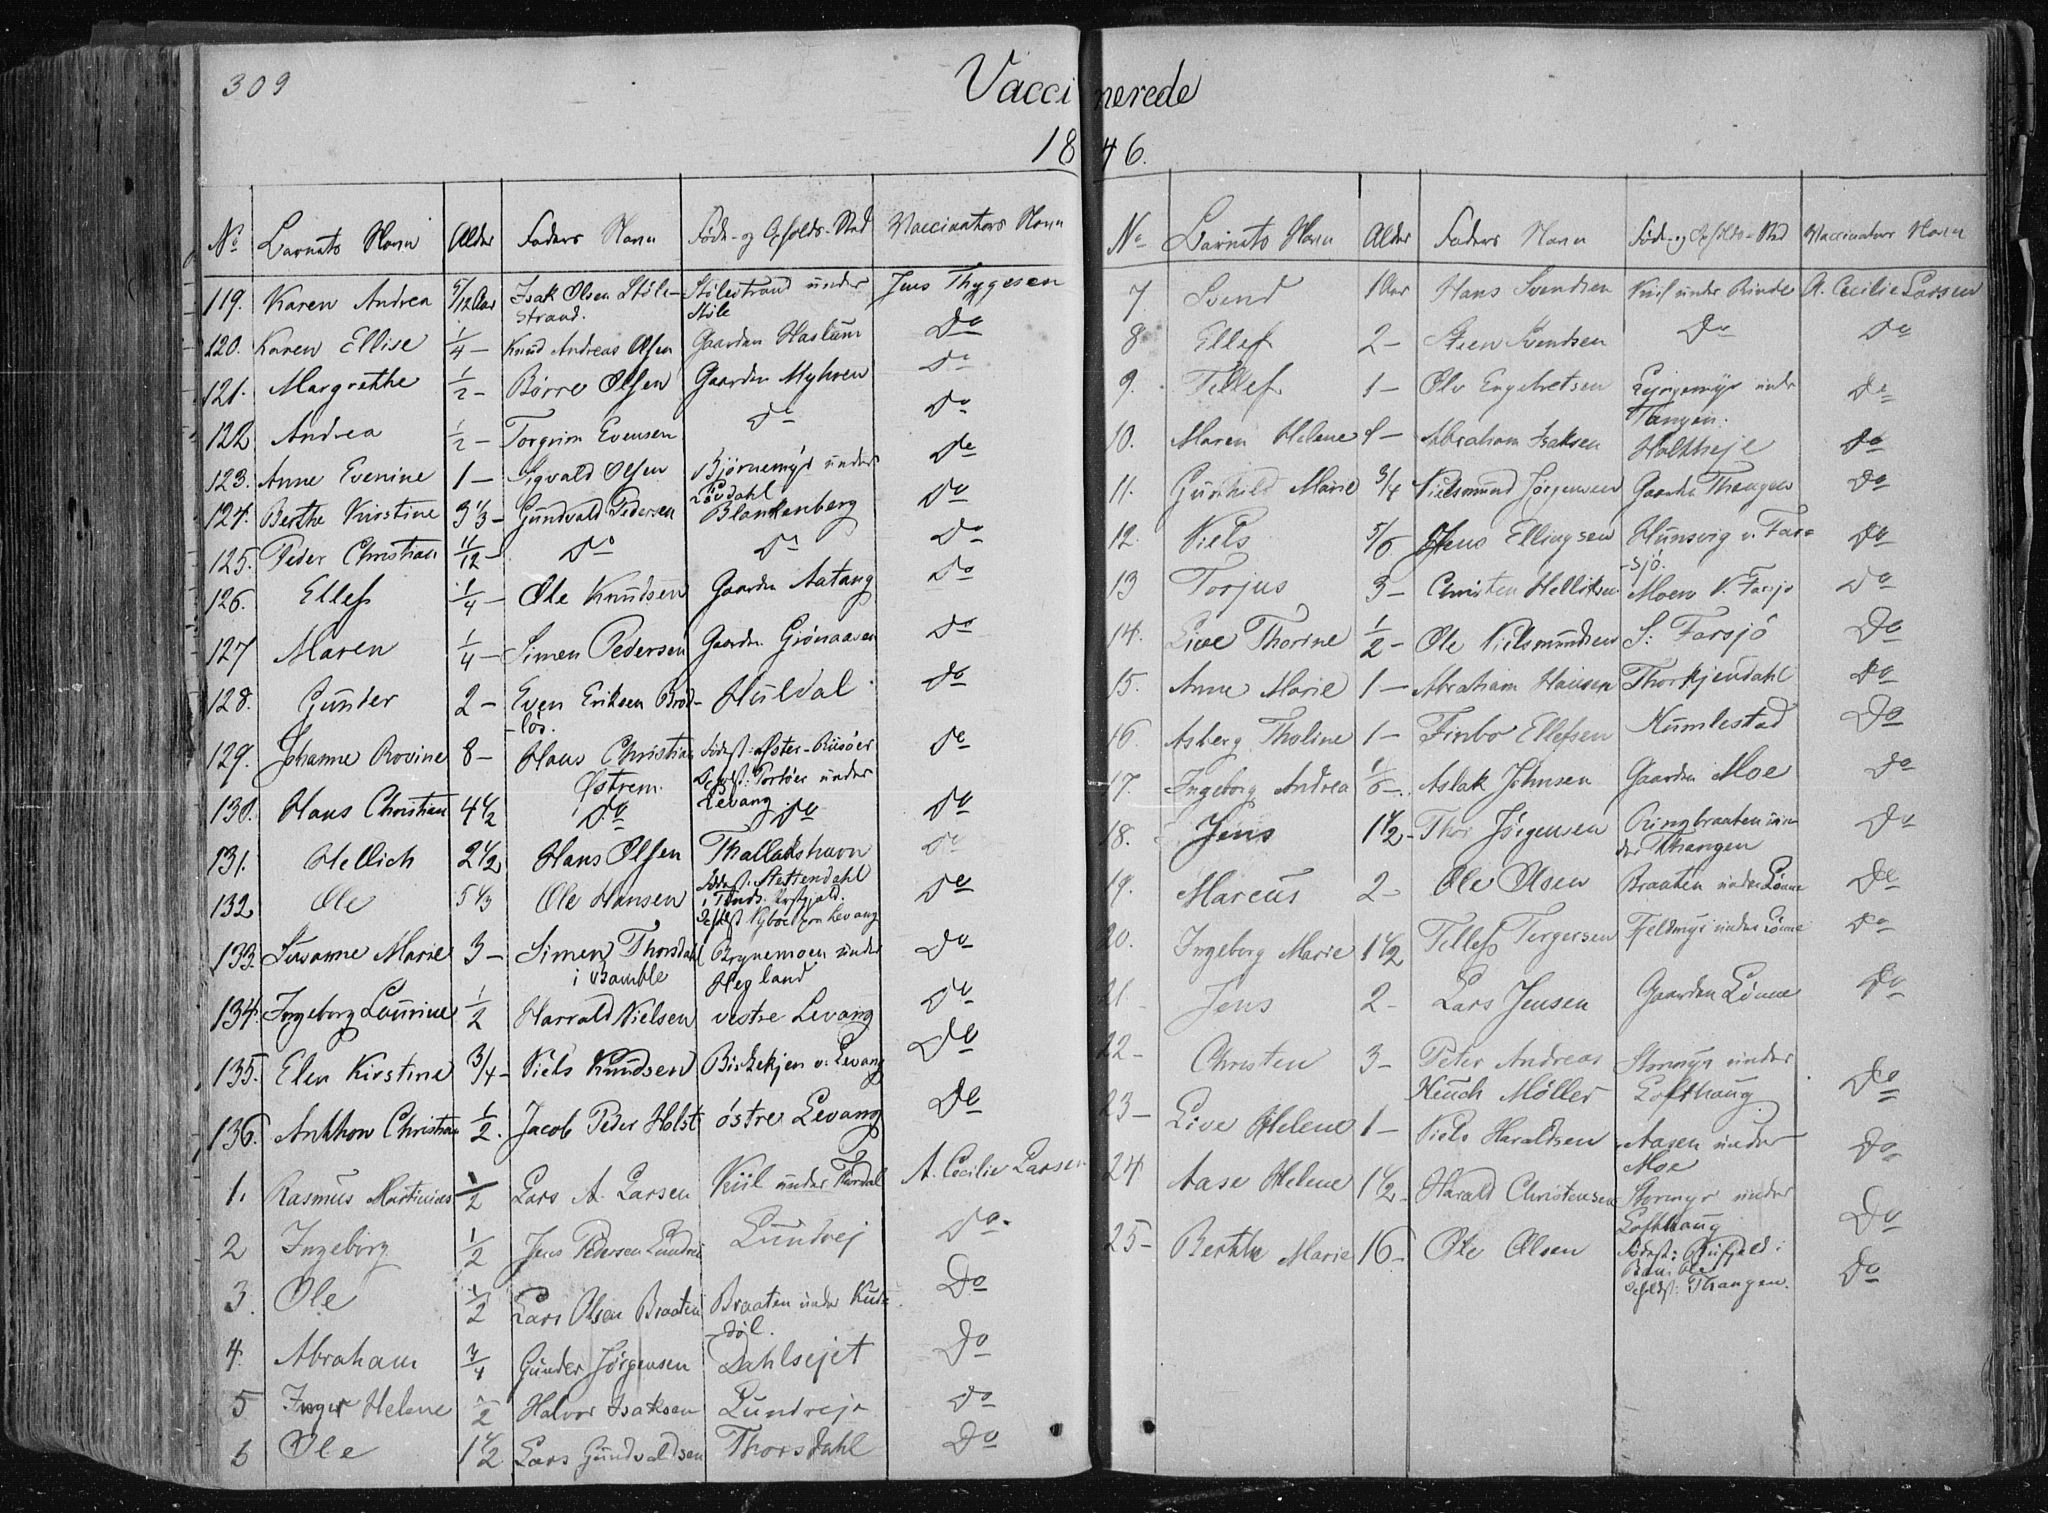 309
Vaccinerede
1846.
No Barnets Navn Alder Faders Navn Føde- og Opholds-Sted Vaccinators Navn
119. Karen Andrea 5/12 Aar Isak Olsen Støle- Stølestrand under Jens Thygesen
strand. Støle
120. Karen Ellise 1/4 – Knud Andreas Olsen Gaarden Haslum Do
121. Margrethe 1/2 – Børre Olsen Gaarden Myhren Do
122 Andrea 1/2 – Torgrim Evensen Do Do
123. Anne Evenine 1 – Sigvald Olsen Bjørnemyr under Do
Lovdahl
124. Berthe Kirstine 3 1/3 – Gundvald Pedersen Blankenberg Do
125. Peder Christian 11/12 – Do Do Do
126. Ellef 1/4 – Ole Knudsen Gaarden Aatang Do
127 Maren 1/4 – Simen Pedersen Gaarden Grønaasen Do
128. Gunder 2 – Even Eriksen Brød- Huldal Do
-løs.
129. Johanne Rovine 8 – Hans Christian Fødest: Øster-Riisøer Do
Østrem. Opholdst: Portøer under
Levang
130. Hans Christian 4 1/2 Do Do Do
131. Hellich 2 1/2 Hans Olsen Thallakshavn Do
132 Ole 5 1/3 Ole Hansen Fødest: Stettendahl Do
133. Susanne Marie 3 – Simen Thorsdahl Brynemoen under Do
i Bamble Hegland
134. Ingeborg Laurine 1/2 Harrald Nielsen vestre Levang Do
135. Elen Kirstine 3/4 – Niels Knudsen Birkekjen v. Levang Do
136. Anthon Christian 1/2. Jacob Peder Holst østre Levang Do
1. Rasmus Martinius 1/2 Lars A. Larsen Kiil under Thordal A. Cecilie Larsen
2 Ingeborg 1/2 Jens Pedersen Lundrej Lundrej Do.
3. Ole 1/2 Lars Olsen Braaten Braaten under Kur- Do
døl.
4. Abraham 3/4 Gunder Jørgensen Dahlsejet Do
5 Inger Helene 1/2 Halvor Isaksen Lundreje Do
6 Ole 1 1/2 Lars Gundvaldsen Thorsdahl Do
No Barnets Navn Alder Faders Navn Føde- og Opholds-Sted Vaccinators Navn
7 Svend 1 Aar Hans Svendsen Kiil under Rinde A. Cecilie Larsen
8 Ellef 2 – Steen Svendsen Do Do
9. Tellef 1 – Ole Engebretsen under Do
Tangen.
10. Maren Helene Abraham Isaksen Holtheje Do
11. Gunhild Marie 3/4 Nielsmund Jørgensen Gaarden Thangen Do
12. Niels 5/6 Jens Ellingsen Hunsvig v. Far- Do
-sjø.
13 Torjus 3 – Christen Helliksen Moen V. Farsjø Do
14. Live Thorine 1/2 – Ole Nielsmundsen S: Farsjø Do
15. Anne Marie 1 – Abraham Hansen Thorkjendahl Do
16 Asberg Tholine 1 – Finbo Ellefsen Humlestad Do
17. Ingeborg Andrea Aslak Johnsen Gaarden Moe Do
18. Jens 1 1/2 – Thor Jørgensen Ringbraaten un- Do
der Thangen
19. Marcus 2 – Ole Olsen Braaten under Lønne Do
20. Ingeborg Marie 1 1/2 Tellef Tergersen Fjeldmyr under Lønne Do
21 Jens 2 – Lars Jensen Gaarden Lønne Do
22 – Christen 3 – Peter Andreas Stormyr under
Heuch Møller Lofthaug. Do
23 – Live Helene 1 – Niels Haraldsen Aasen under Do
Moe
24 Aase Helene 1 1/2 – Harald Christensen Stormyr under Do
Lofthaug
25 – Berthe Marie 16 – Ole Olsen Fødest: i Do
Bamble
Opholdst: Thangen.